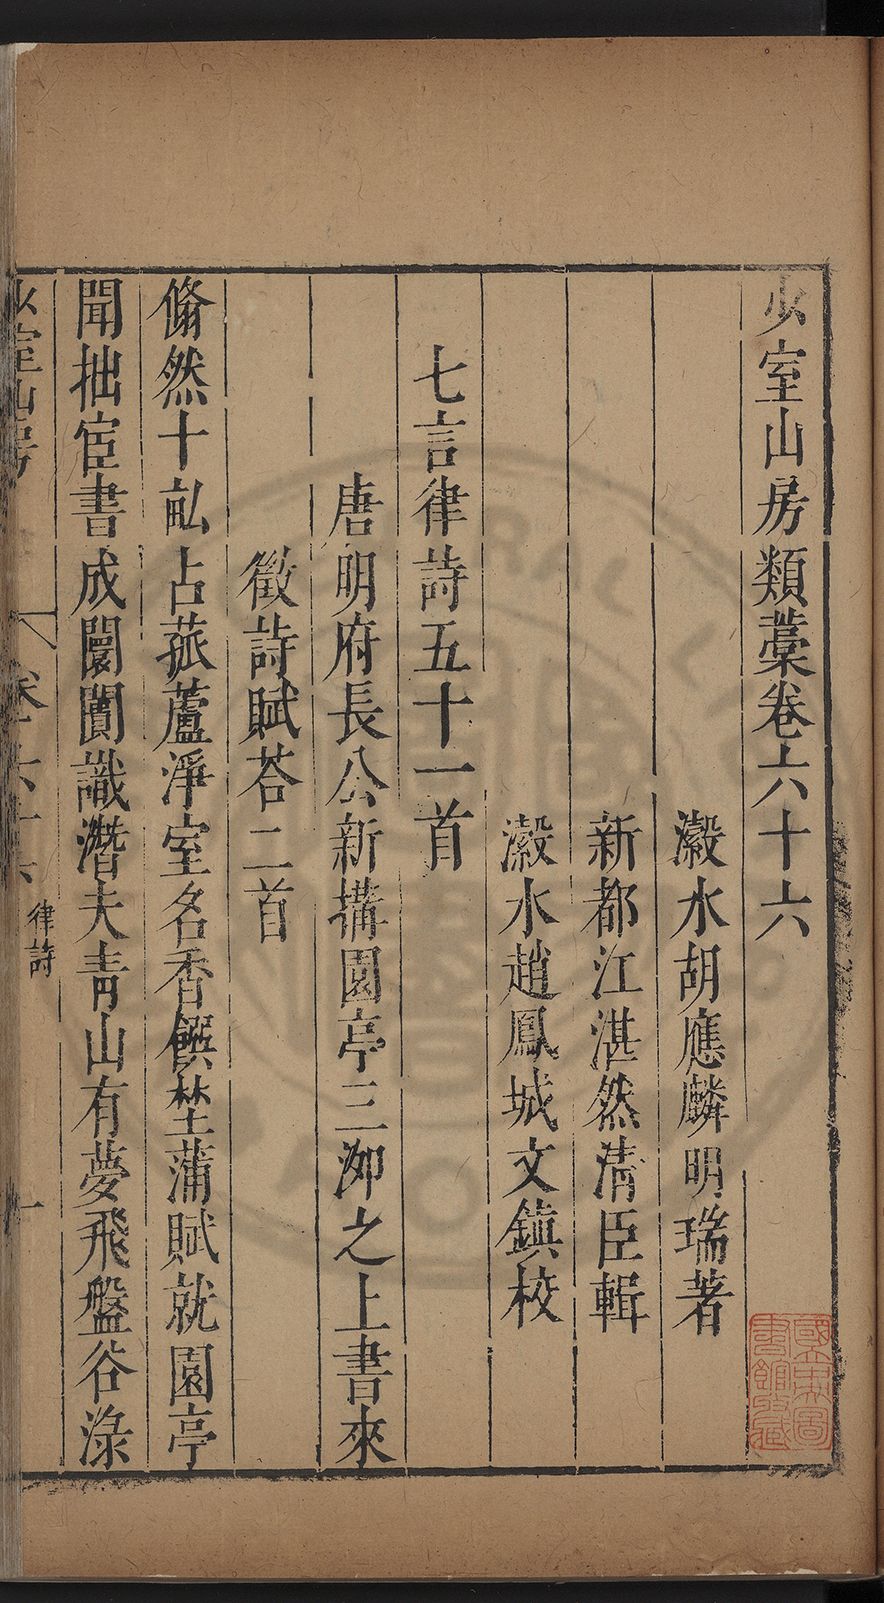 少室山房類藁卷六十六
瀫水胡應麟明瑞著
新都江湛然清臣輯
瀫水趙鳳城文鎮校
七言律詩五十一首
唐明府長公新搆園亭三泖之上書來
徵詩賦荅二首
翛然十畝占菰蘆淨室名香饌埜蒲賦就園亭
聞拙宦書成闤闠識潛夫青山有夢飛盤谷淥
少室山房
卷六十六
律詩
一
國立中央圖書館收藏